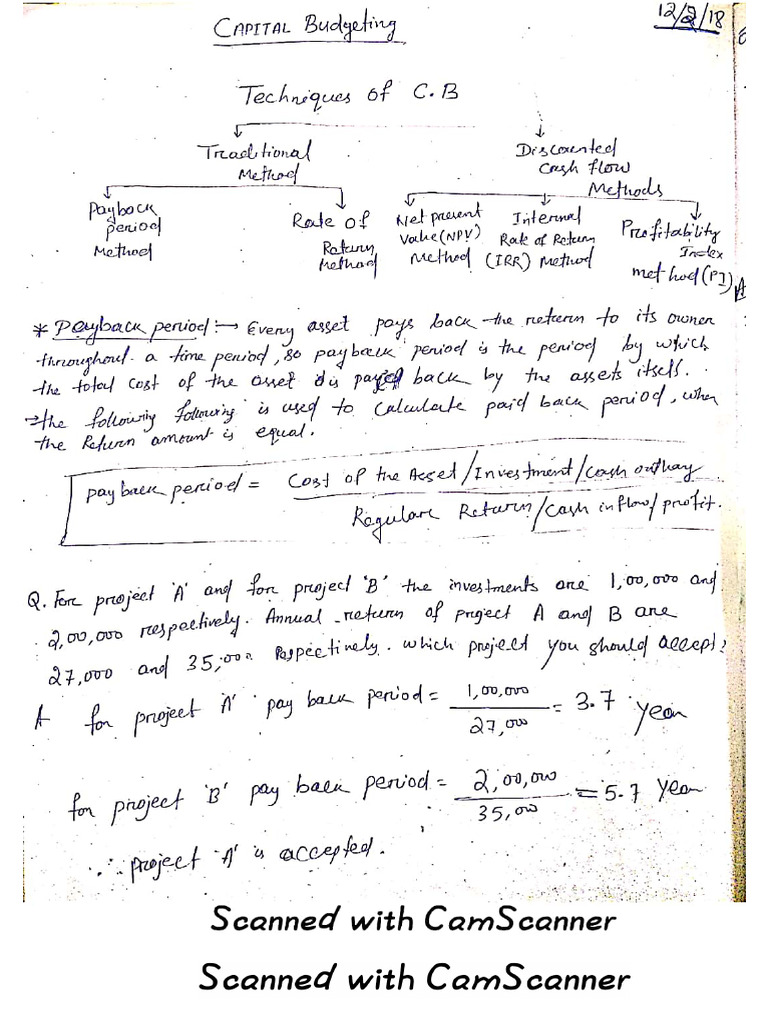 CAPITAL Budgeting
12/2/18
Techniques of C.B
Traditional Method
Discounted Cash flow Methods
Payback period Method
Rate of Return Method
Net present Value (NPV) Method
Internal Rate of Return (IRR) Method
Profitability Index method (PI)
* Payback period :→ Every asset pays back the return to its owner
throughout a time period, so payback period is the period by which
the total cost of the asset is payed back by the assets itself.
→ the following following is used to calculate paid back period, when
the Return amount is equal.
pay back period = Cost of the Asset/Investment/Cash outlay
Regular Return/Cash inflow/profit.
Q. For project 'A' and for project 'B' the investments are 1,00,000 and
2,00,000 respectively. Annual return of project A and B are
27,000 and 35,000 Respectively. which project you should accept?
A for project 'A' pay back period = 1,00,000 / 27,000 = 3.7 year
for project 'B' pay back period = 2,00,000 / 35,000 = 5.7 year
∴ project 'A' is accepted.
Scanned with CamScanner
Scanned with CamScanner